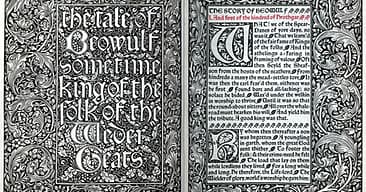 the tale of
Beowulf
sometime
king of the
folk of the
Weder
Geats
THE STORY OF BEOWULF
I. And first of the kindred of Hrothgar
WHAT! we of the Spear-
Danes of yore days, so
was it
That we learn'd
of the fair fame of kings
of the folks
And the
æthelings a faring in
framing of valour. Oft
then Scyld the Sheaf-
son from the hosts of the scathers, From
kindreds a many the mead-settles tore; It
was then the earl fear'd them, sithence was
he first Found bare and all-lacking; so
solace he bided, Wax'd under the welkin
in worship to thrive, Until it was so that
the round-about sitters All over the whale-
road must hearken his will And yield him
the tribute. A good king was that.
By whom then thereafter a son
was begotten, A youngling
in garth, whom the great God
sent thither To foster the
folk; and their crime-need he felt
The load that lay on them
while lordless they lived For a long while
and long. He therefore, the Life-lord, The
Wielder of glory, world's worship he gave him: